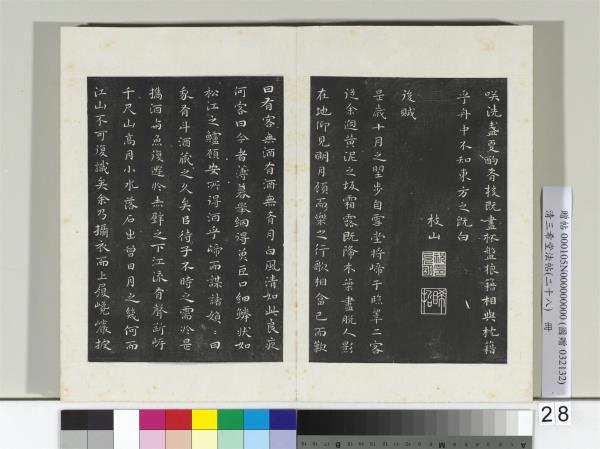 咲洗盞更酌肴核既盡杯盤狼籍相與枕籍
乎舟中不知東方之既白
枝山
後賦
是歲十月之望步自雪堂將歸于臨皋二客
從余過黃泥之坂霜露既降木葉盡脫人影
在地仰見明月顧而樂之行歌相畣已而歎
曰有客無酒有酒無肴月白風清如此良夜
何客曰今者薄暮舉網得魚巨口細鱗狀如
松江之鱸顧安所得酒乎歸而謀諸婦〻曰
我有斗酒藏之久矣㠯待子不時之需於是
攜酒與魚復遊於赤壁之下江流有聲斷岸
千尺山高月小水落石出曾日月之幾何而
江山不可復識矣余乃攝衣而上履巉巖披
贈帖 000105N000000000 (國贈 032132)
清三希堂法帖(二十八) 冊
28